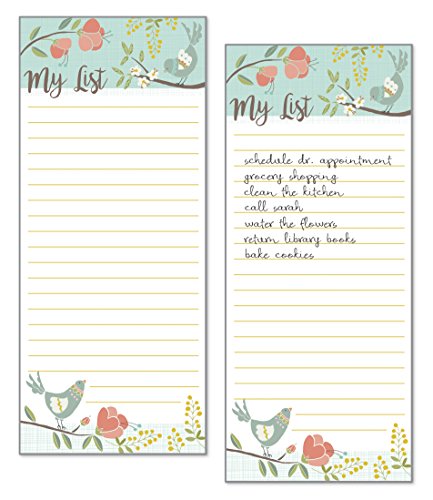 My List
My List
schedule dr. appointment
grocery shopping
clean the kitchen
call sarah
water the flowers
return library books
bake cookies